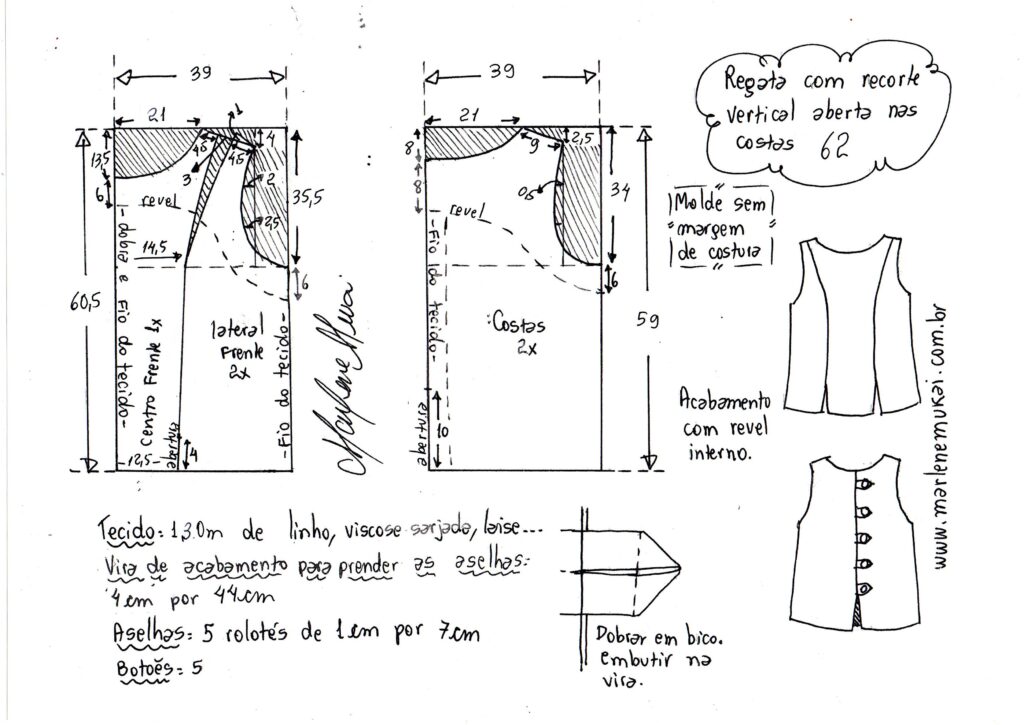 39
21
1
4
13,5
4,5
4,5
3
2
6
revel
35,5
2,5
14,5
6
60,5
-dobra e Fio do tecido-
Centro Frente 1x
lateral
Frente
2x
-Fio do tecido-
abertura
12,5
4
Marlene Mukai
39
21
8
9
2,5
8
0,5
34
revel
6
-Fio do tecido-
Costas
2x
59
abertura
10
Regata com recorte
vertical aberta nas
costas 62
Molde sem
margem
de costura
www.marlenemukai.com.br
Acabamento
com revel
interno.
Tecido: 1,30m de linho, viscose sarjada, laise...
Vira de acabamento para prender as aselhas:
4cm por 44cm
Aselhas: 5 rolotés de 1cm por 7cm
Botões: 5
Dobrar em bico.
embutir na
vira.